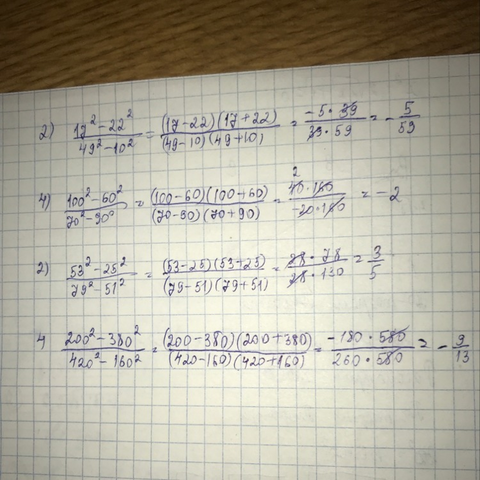 2) (17² - 22²)/(49² - 10²) = ((17-22)(17+22))/((49-10)(49+10)) = (-5·39)/(39·59) = -5/59
4) (100² - 60²)/(70² - 90²) = ((100-60)(100+60))/((70-90)(70+90)) = (40·160)/(-20·160) = -2
2) (53² - 25²)/(79² - 51²) = ((53-25)(53+25))/((79-51)(79+51)) = (28·78)/(28·130) = 3/5
4 (200² - 380²)/(420² - 160²) = ((200-380)(200+380))/((420-160)(420+160)) = (-180·580)/(260·580) = -9/13